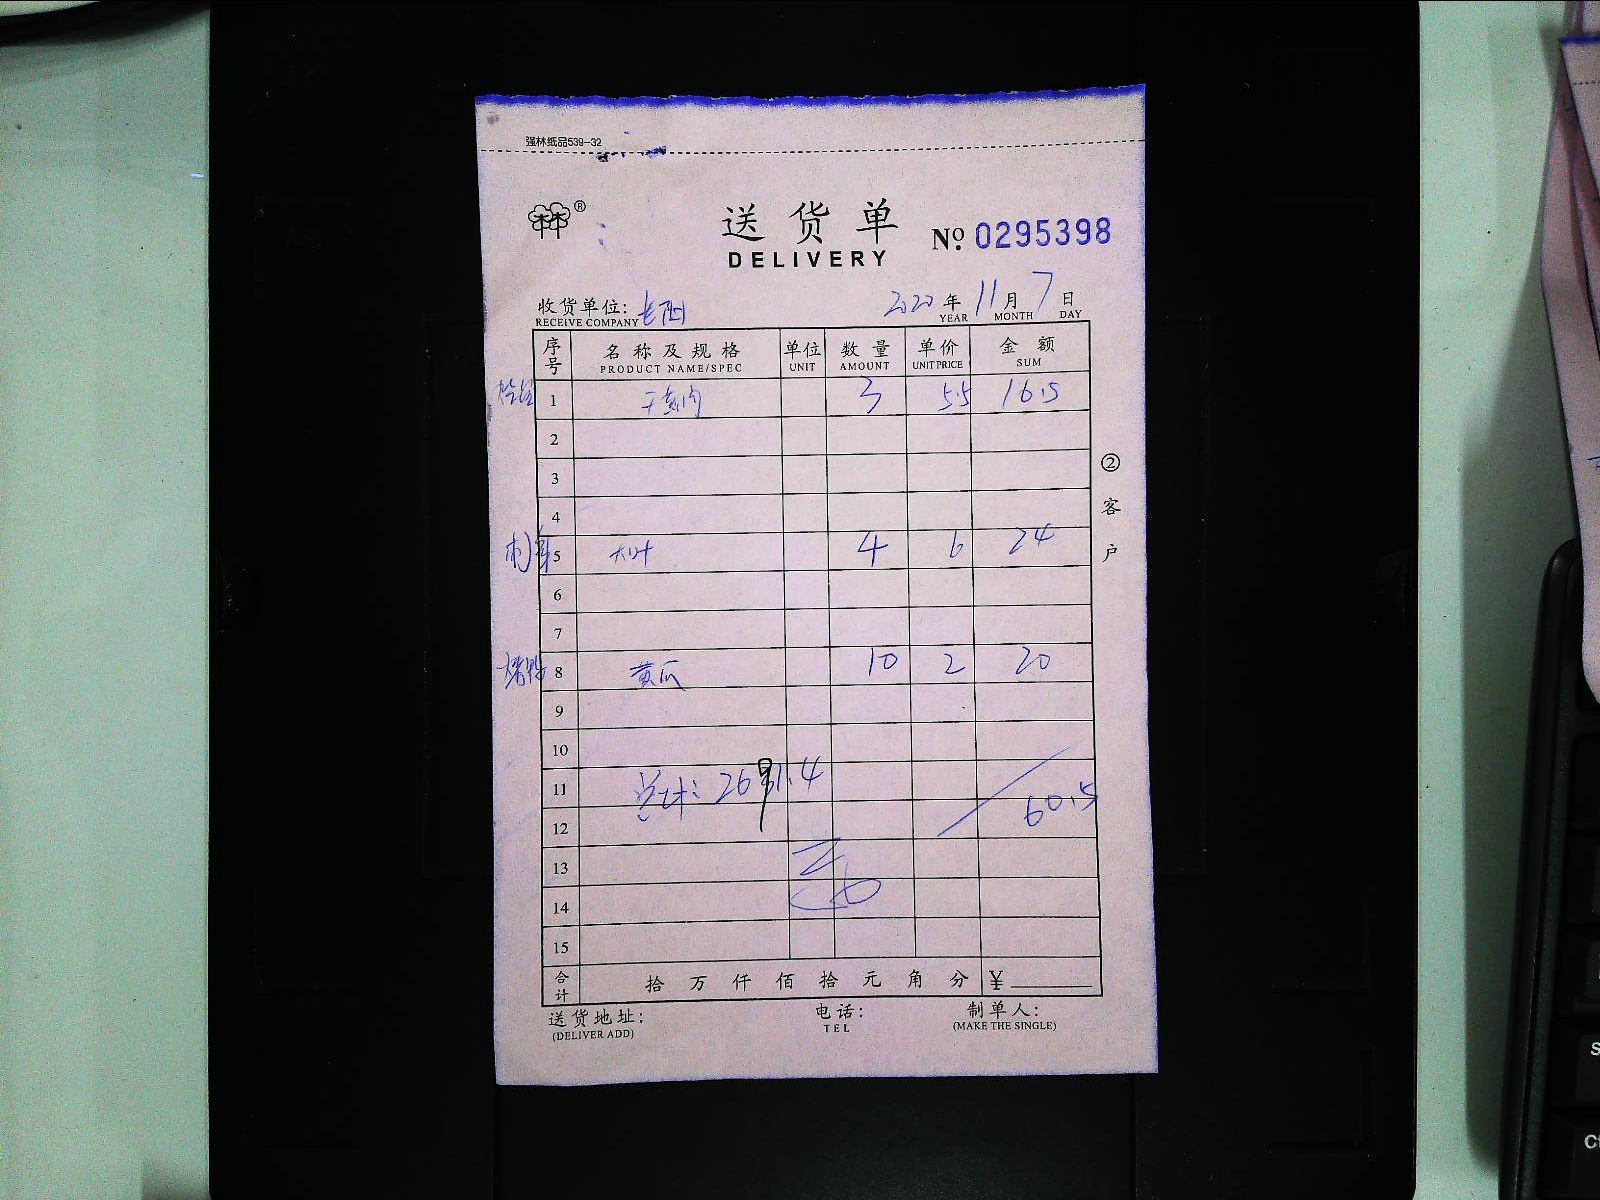 强林纸品539-32
林林®
送货单 № 0295398
DELIVERY
收货单位: 2020年11月7日
RECEIVE COMPANY YEAR MONTH DAY
序号 名称及规格 单位 数量 单价 金额
PRODUCT NAME/SPEC UNIT AMOUNT UNIT PRICE SUM
1 3 5.5 16.5
2
3
4
5 大叶 4 6 24
6
7
8 黄瓜 10 2 20
9
10
11 总计:
12 60.5
13
14
15
合计 拾 万 仟 佰 拾 元 角 分 ¥
送货地址: 电话: 制单人:
(DELIVER ADD) TEL (MAKE THE SINGLE)
②客户